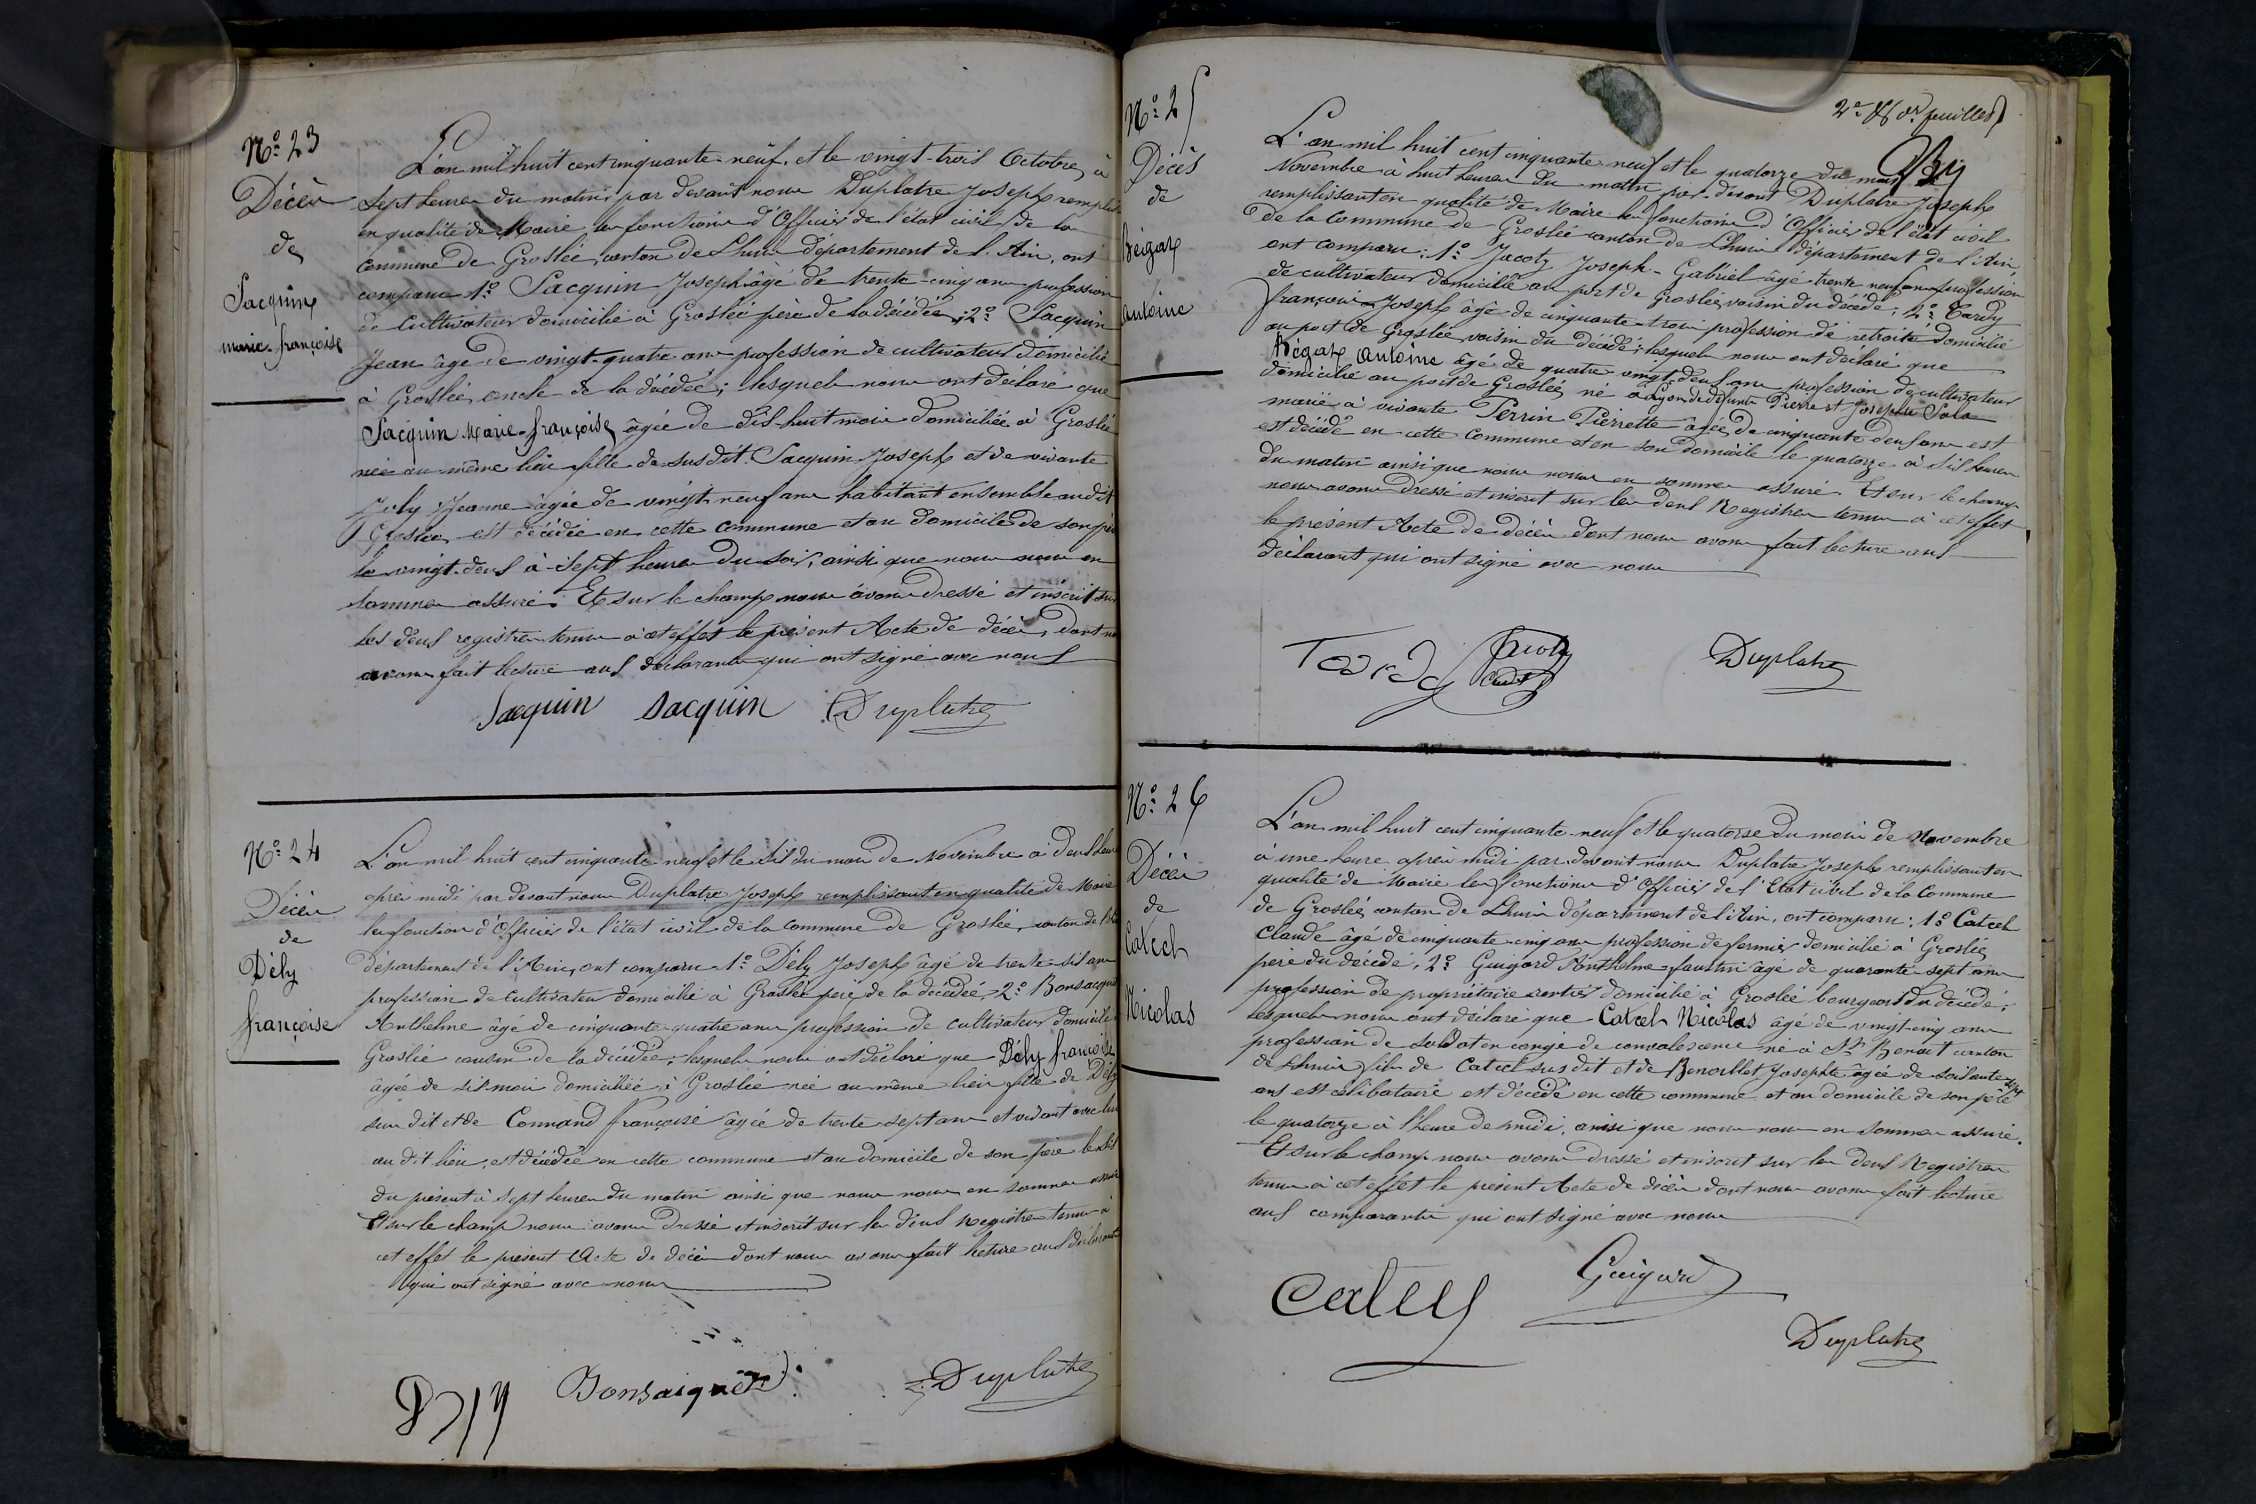 Nº 23
Décès
de
Jacquin
marie-françoise
L'an mil huit cent cinquante-neuf, et le vingt-trois Octobre, à
Sept heures du matin, par devant nous Duplatre Joseph
en qualité de Maire les fonctions d'Officier de l'état civil de la
Commune de Groslée, canton de Lhuis département de l'Ain, ont
comparu 1º Jacquin Joseph âgé de trente-cinq ans profession
de Cultivateur domicilié à Groslée père de la décédée, 2º Jacquin
Jean âgé de vingt-quatre ans profession de cultivateur domicilié
à Groslée oncle de la décédée; lesquels nous ont déclaré que
Jacquin Marie-françoise âgée de dix-huit mois domiciliée à Groslée
née au même lieu fille de susdit Jacquin Joseph et de vivante
Joly Jeanne âgée de vingt-neuf ans habitant ensemble au dit
Groslée, est décédée en cette commune et au domicile de son père
le vingt-deux à Sept heures du soir, ainsi que nous nous en
sommes assuré. Et sur le champ nous avons dressé et inscrit sur
les deux registres tenus à cet effet le présent Acte de décès, dont
avons fait lecture aux déclarants qui ont signé avec nous
Jacquin Jacquin Duplatre
Nº 24
Décès
de
Dély
françoise
L'an mil huit cent cinquante neuf et le dix du mois de Novembre à deux heures
après midi par devant nous Duplatre Joseph remplissant en qualité de Maire
les fonction d'Officier de l'état civil de la Commune de Groslée, canton de
département de l'Ain, ont comparu 1º Dély Joseph âgé de trente-six ans
profession de cultivateur domicilié à Groslée père de la décédée, 2º
Anthelme âgé de cinquante-quatre ans profession de cultivateur domicilié
Groslée cousin de la décédée, lesquels nous ont déclaré que Dély françoise
âgée de six mois domiciliée à Groslée née au même lieu fille de Dély
sus dit et de Connand françoise âgée de trente-sept ans et vivant avec lui
au dit lieu, est décédée en cette commune et au domicile de son père le dix
du présent à Sept heures du matin ainsi que nous nous en sommes assuré
Et sur le champ nous avons dressé et inscrit sur les deux registres tenus à
cet effet le présent Acte de décès dont nous avons fait lecture aux déclarants
qui ont signé avec nous
Duplatre
Nº 25
Décès
de
Bégaz
antoine
L'an mil huit cent cinquante neuf et le quatorze du mois
Novembre à huit heures du matin par-devant Duplatre Joseph
remplissant en qualité de Maire les fonctions d'Officier de l'état civil
de la Commune de Groslée canton de Lhuis département de l'Ain,
ont comparu: 1º Jacoty Joseph-Gabriel âgé trente neuf ans profession
de cultivateur domicilié au port de Groslée, voisin du décédé, 2º Tardy
françois Joseph âgé de cinquante-trois profession de retraité domicilié
au port de Groslée voisin du décédé; lesquels nous ont déclaré que
Bégaz antoine âgé de quatre vingt-deux ans profession de cultivateur
domicilié au port de Groslée, né à Lyon de défunts Pierre et Josephte
marié à vivante Perrin Pierrette âgée de cinquante deux ans est
est décédé en cette commune et en son domicile le quatorze à six heures
du matin ainsi que nous nous en sommes assuré. Et sur le champ
nous avons dressé et inscrit sur les deux Registres tenus à cet effet
le présent Acte de décès dont nous avons fait lecture aux
déclarant qui ont signé avec nous
Tardy Jacoty Duplatre
Nº 26
Décès
de
Catcel
Nicolas
L'an mil huit cent cinquante-neuf et le quatorze du mois de Novembre
à une heure après midi par devant nous Duplatre Joseph remplissant en
qualité de Maire les fonctions d'Officier de l'Etat civil de la Commune
de Groslée, canton de Lhuis département de l'Ain, ont comparu: 1º Catcel
Claude âgé de cinquante-cinq ans profession de fermier domicilié à Groslée
père du décédé, 2º Guigard Anthelme-faustin âgé de quarante-sept ans
profession de propriétaire rentier domicilié à Groslée bourgeois du décédé;
lesquels nous ont déclaré que Catcel Nicolas âgé de vingt-cinq ans
profession de soldat en congé de convalescence né à St Benoit canton
de Lhuis, fils de Catcel susdit et de Josephte âgée de soixante-sept
ans est célibataire est décédé en cette commune et au domicile de son père
le quatorze à l'heure de midi, ainsi que nous nous en sommes assuré.
Et sur le champ nous avons dressé et inscrit sur les deux Registres
tenus à cet effet le présent Acte de décès dont nous avons fait lecture
aux comparants qui ont signé avec nous
Catcel Guigard
Duplatre